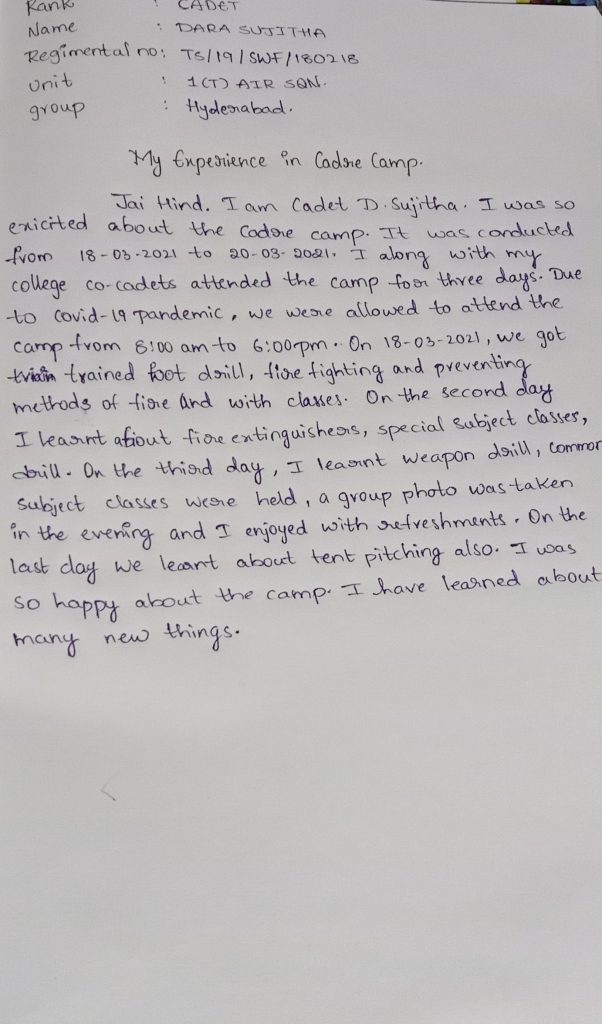 Rank : CADET
Name : DARA SUJITHA
Regimental no: TS/19/SWF/180218
Unit : 1(T) AIR SQN.
group : Hyderabad.
My Experience in Cadre Camp.
Jai Hind. I am Cadet D. Sujitha. I was so
exicited about the Cadre camp. It was conducted
from 18-03-2021 to 20-03-2021. I along with my
college co-cadets attended the camp for three days. Due
to Covid-19 pandemic, we were allowed to attend the
camp from 8:00 am to 6:00pm. On 18-03-2021, we got
trained foot drill, fire fighting and preventing
methods of fire and with classes. On the second day
I learnt about fire extinguishers, special subject classes,
drill. On the third day, I learnt weapon drill, common
subject classes were held, a group photo was taken
in the evening and I enjoyed with refreshments. On the
last day we learnt about tent pitching also. I was
so happy about the camp. I have learned about
many new things.